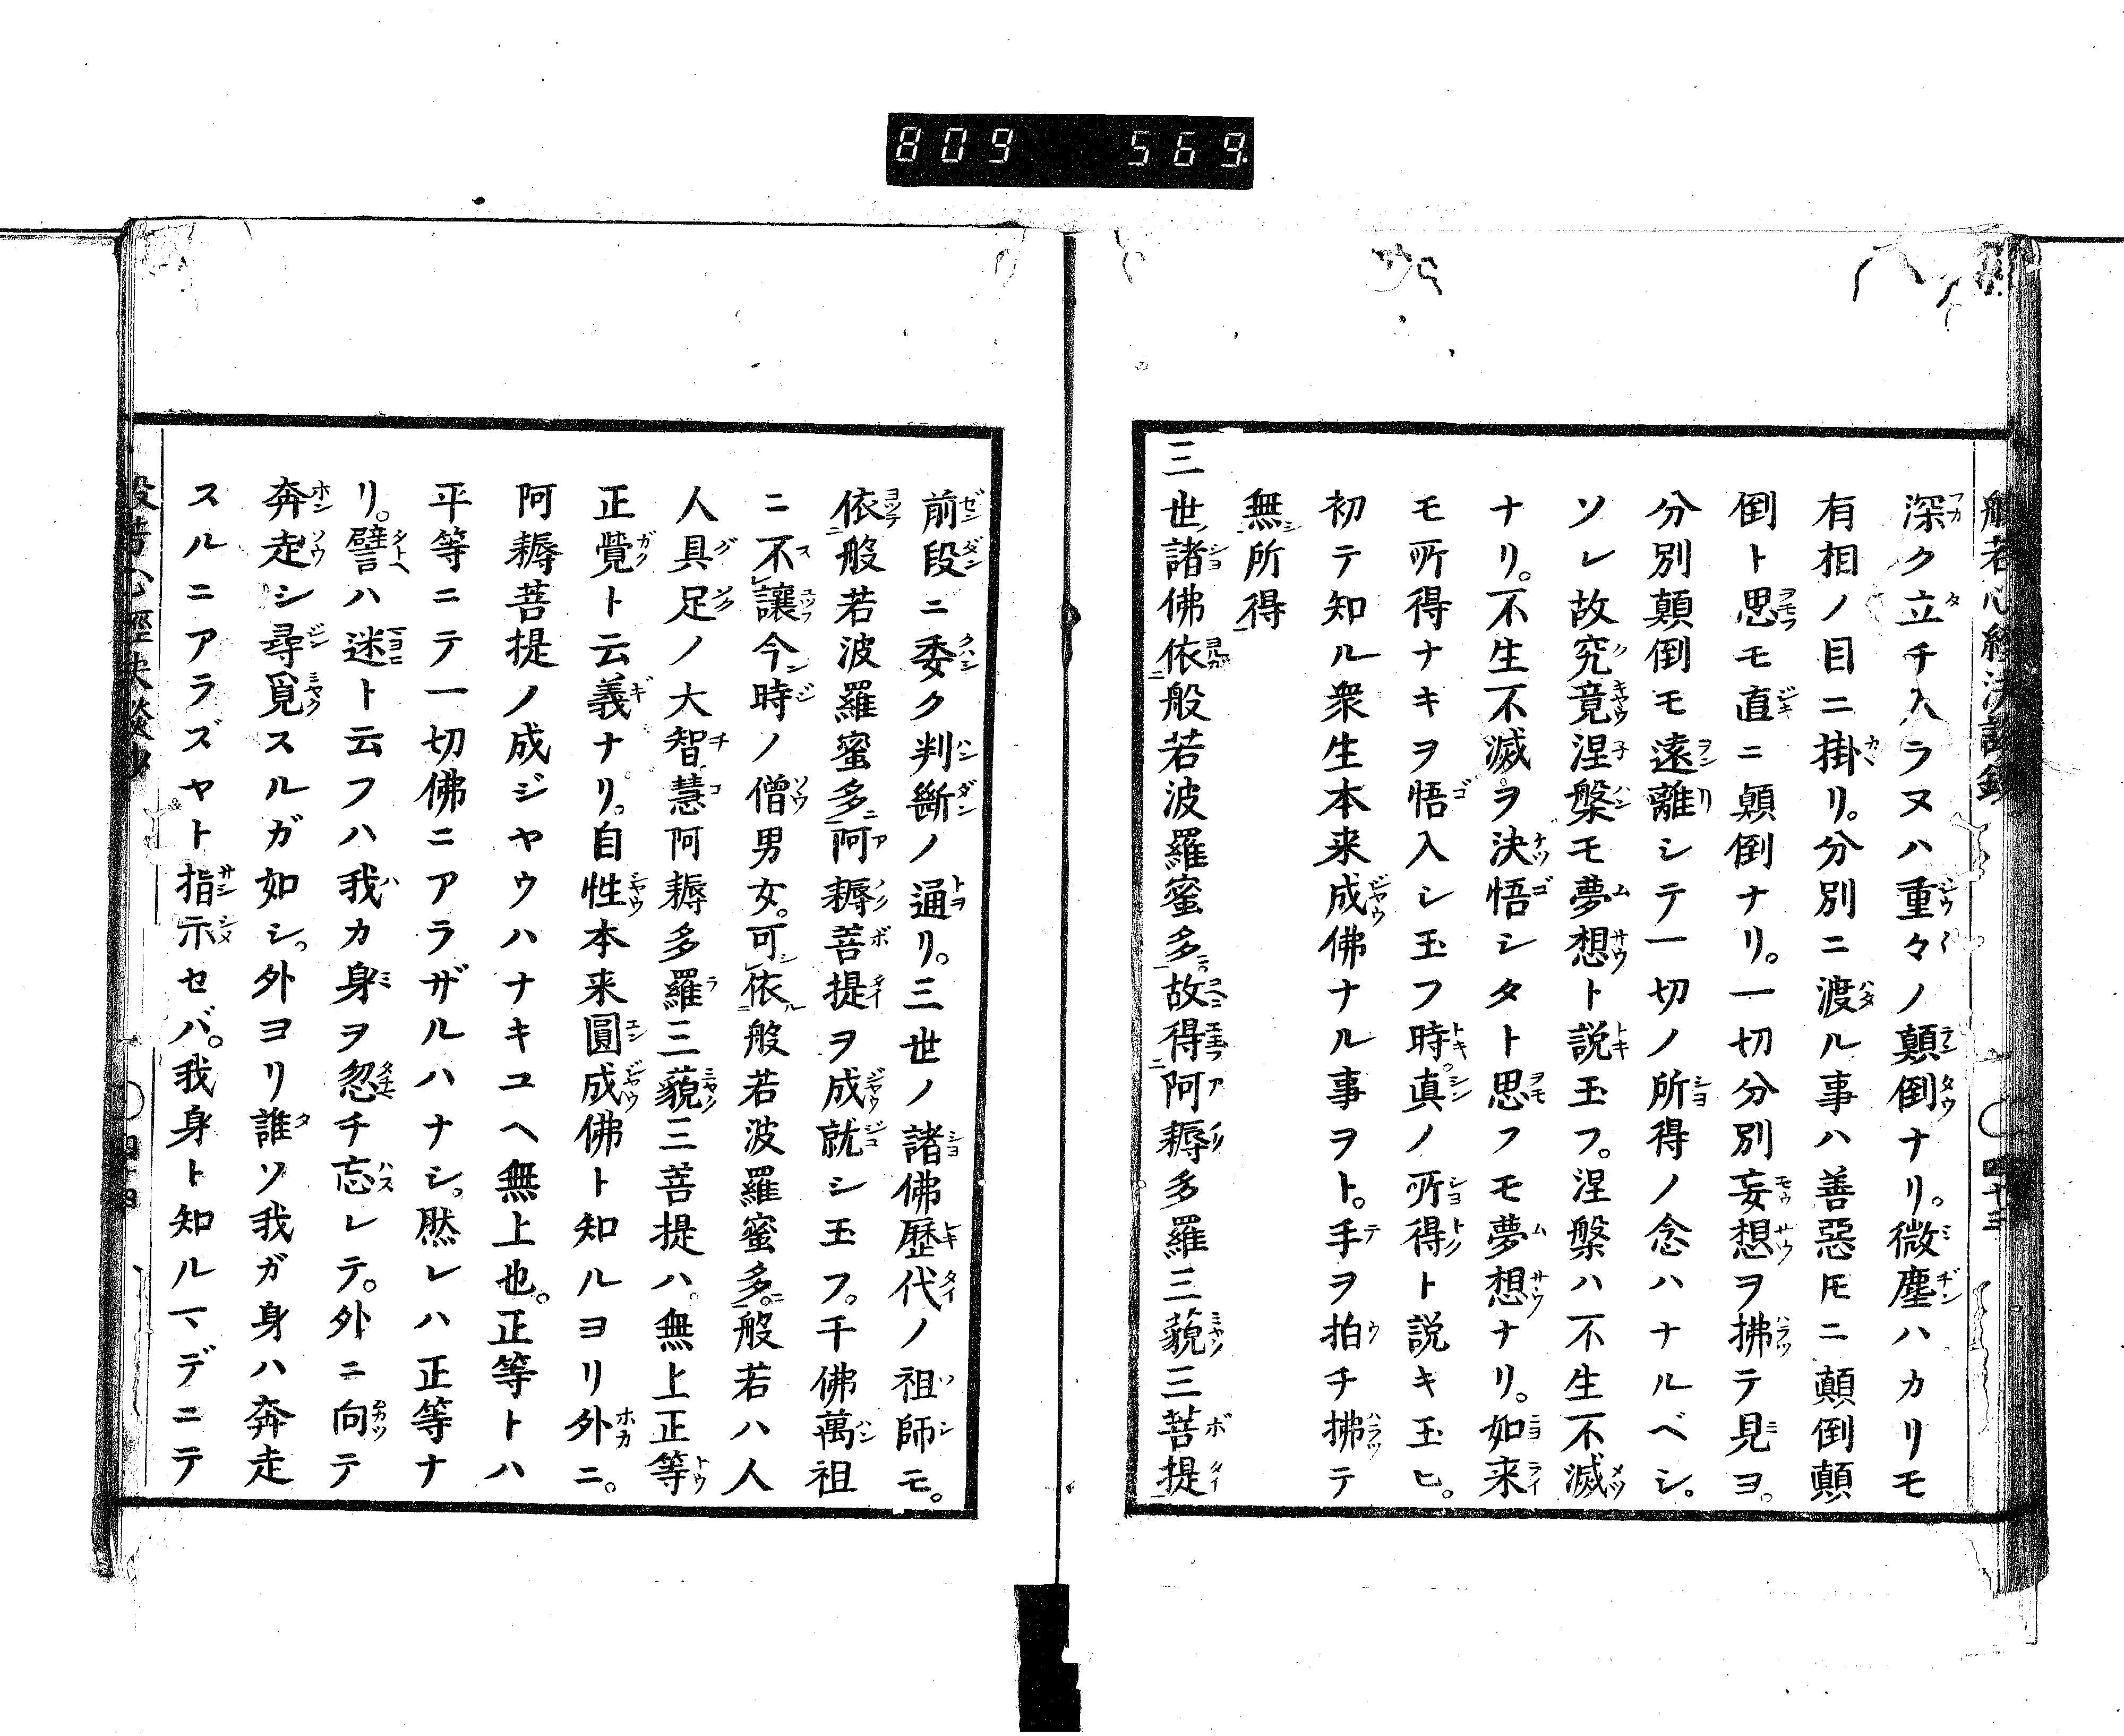 809 569
般若心經決談鈔 四十三
深ク立チ入ラヌハ重々ノ顛倒ナリ。微塵ハカリモ
有相ノ目ニ掛リ。分別ニ渡ル事ハ善惡𪜈ニ顛倒顛
倒ト思モ直ニ顛倒ナリ。一切分別妄想ヲ拂テ見ヨ。
分別顛倒モ遠離シテ一切ノ所得ノ念ハナルベシ。
ソレ故究竟涅槃モ夢想ト説玉フ。涅槃ハ不生不滅
ナリ。不生不滅ヲ決悟シタト思フモ夢想ナリ。如来
モ所得ナキヲ悟入シ玉フ時。真ノ所得ト説キ玉ヒ。
初テ知ル衆生本来成佛ナル事ヲト。手ヲ拍チ拂テ
無所得
三世諸佛依般若波羅蜜多。故得阿耨多羅三藐三菩提
前段ニ委ク判斷ノ通リ。三世ノ諸佛歴代ノ祖師モ。
依般若波羅蜜多阿耨菩提ヲ成就シ玉フ。千佛萬祖
ニ不讓今時ノ僧男女。可依般若波羅蜜多。般若ハ人
人具足ノ大智慧阿耨多羅三藐三菩提ハ。無上正等
正覺ト云義ナリ。自性本来圓成佛ト知ルヨリ外ニ。
阿耨菩提ノ成ジヤウハナキユヘ無上也。正等トハ
平等ニテ一切佛ニアラザルハナシ。然レハ正等ナ
リ。譬ハ迷ト云フハ我カ身ヲ忽チ忘レテ。外ニ向テ
奔走シ尋覓スルガ如シ。外ヨリ誰ソ我ガ身ハ奔走
スルニアラズヤト指示セバ。我身ト知ルマデニテ
般若心經決談鈔 四十四